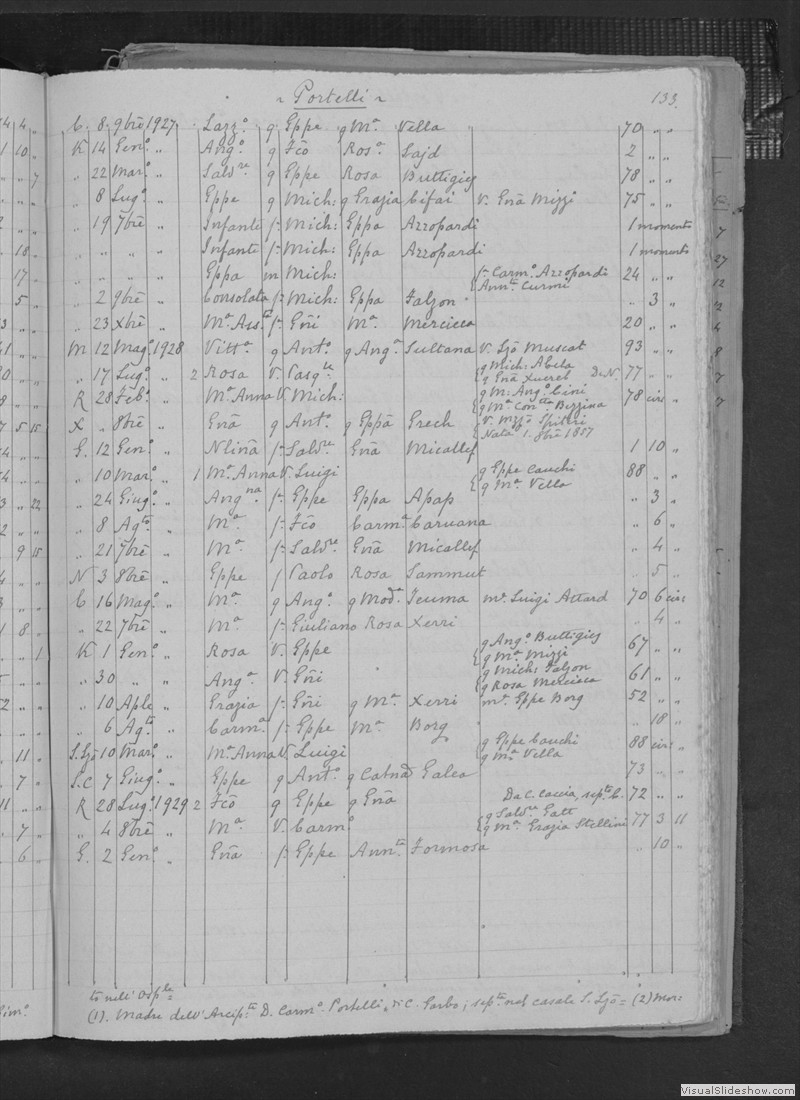 ~ Portelli ~ 133.
C. 8. 9bre 1927 Lazz.o q Eppe q Ma. Vella 70 " "
K 14 Gen.o " Ang.o q Fco Ros.a Sajd 2 " "
" 22 Mar.o " Salv.re q Eppe Rosa Buttigieg 78 " "
" 8 Lug.o " Eppe q Mich: q Grazia Cifai V. Gña Mizzi 75 " "
" 19 7bre " Infante f. Mich: Eppa Azzopardi 1 momento
" " " " Infante f. Mich: Eppa Azzopardi 1 momento
" " " " Eppa m Mich: f. Carm.o Azzopardi 24 " "
Ann.ta Curmi
" 2 9bre " Consolata f. Mich: Eppa Falzon " 3 "
" 23 Xbre " Ma. Ass.ta f. Gñi Ma. Mercieca 20 " "
M 12 Mag.o 1928 Vitt.a q Ant.o q Ang.a Sultana V. Sjo Muscat 93 " "
" 17 Lug.o " 2 Rosa V. Pasq.le q Mich: Abela D. N. 77 " "
q Gña Xuereb
R 28 Feb.o " Ma. Anna V. Mich: q M: Ang.o Cini 78 circ "
q Ma. Con.tta Bezzina
X " 8bre " Gña q Ant.o q Eppa Grech V. Mzzo Spiteri
Nata 1. 8bre 1857
G. 12 Gen.o " Nlina f. Salv.re Gña Micallef 1 10 "
" 10 Mar.o " 1 Ma. Anna V. Luigi q Eppe Cauchi 88 " "
q Ma. Vella
" 24 Giug.o " Ang.na f. Eppe Eppa Apap " 3 "
" 8 Ag.to " Ma. f. Fco Carm.a Caruana " 6 "
" 21 7bre " Ma. f. Salv.re Gña Micallef " 4 "
N 3 8bre " Eppe f Paolo Rosa Sammut " 5 "
C 16 Mag.o " Ma. q Ang.o q Mod.a Xeuma m. Luigi Attard 70 6 circ
" 22 7bre " Ma. f. Giuliano Rosa Xerri " 4 "
K 1 Gen.o " Rosa V. Eppe q Ang.o Buttigieg 67 " "
q Ma. Mizzi
" 30 " " Ang.a V. Gñi q Mich: Falzon 61 " "
q Rosa Mercieca
" 10 Aple " Grazia f. Gñi q Ma. Xerri m. Eppe Borg 52 " "
" 6 Ag.to " Carm.a f. Eppe Ma. Borg " 18 "
S. Sjo 10 Mar.o " Ma. Anna V. Luigi q Eppe Cauchi 88 circ "
q Ma. Vella
S. C 7 Giug.o " Eppe q Ant.o q Catna Galea 73 " "
R 28 Lug.o 1929 2 Fco q Eppe q Gña Da C. Caccia, sep.to C. 72 " "
" 4 8bre " Ma. V. Carm.o q Salv.re Gatt 77 3 11
q Ma. Grazia Stellini
G. 2 Gen.o " Gña f. Eppe Ann.ta Formosa " 10 "
to nell' Osp.le
(1). Madre dell' Arcip.te D. Carm.o Portelli, di C. Garbo; sep.ta nel casale S. Sjo = (2) Mor:
VisualSlideshow.com